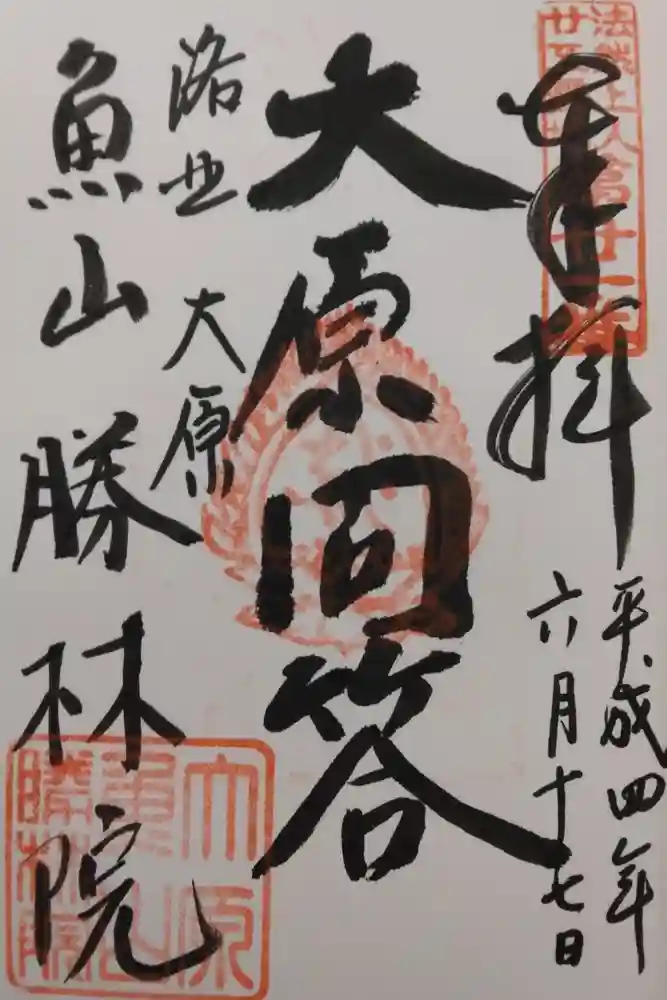 法然上人
廿五霊場
第廿一番
奉拝
平成四年
六月十七日
大原問答
洛北 大原
魚山 勝林院
大原
魚山
勝林院